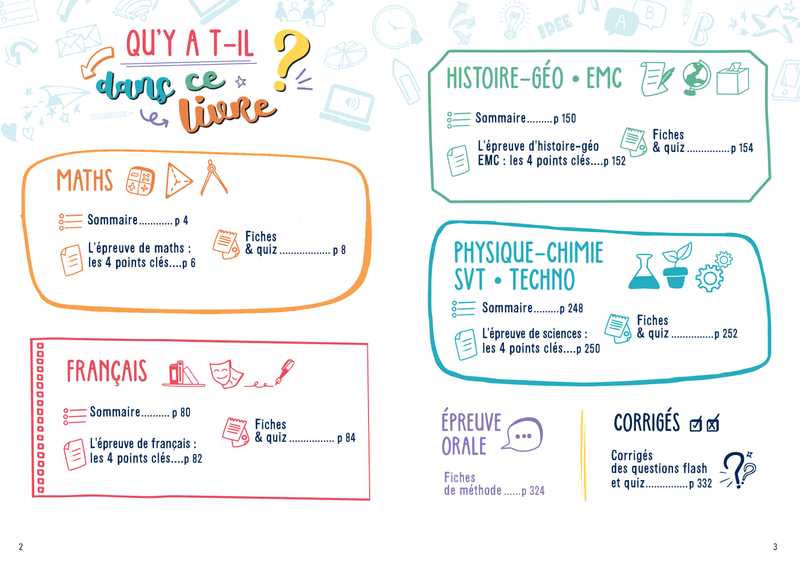 QU'Y A T-IL
dans ce
livre ?
MATHS
Sommaire............p 4
L'épreuve de maths :
les 4 points clés....p 6
Fiches
& quiz.................p 8
FRANÇAIS
Sommaire..........p 80
L'épreuve de français :
les 4 points clés....p 82
Fiches
& quiz...............p 84
2
IDEE
A
B
B
HISTOIRE-GÉO • EMC
Sommaire.........p 150
L'épreuve d'histoire-géo
EMC : les 4 points clés....p 152
Fiches
& quiz...............p 154
PHYSIQUE-CHIMIE
SVT • TECHNO
Sommaire.........p 248
L'épreuve de sciences :
les 4 points clés....p 250
Fiches
& quiz...............p 252
ÉPREUVE
ORALE
Fiches
de méthode......p 324
CORRIGÉS
Corrigés
des questions flash
et quiz...............p 332
3